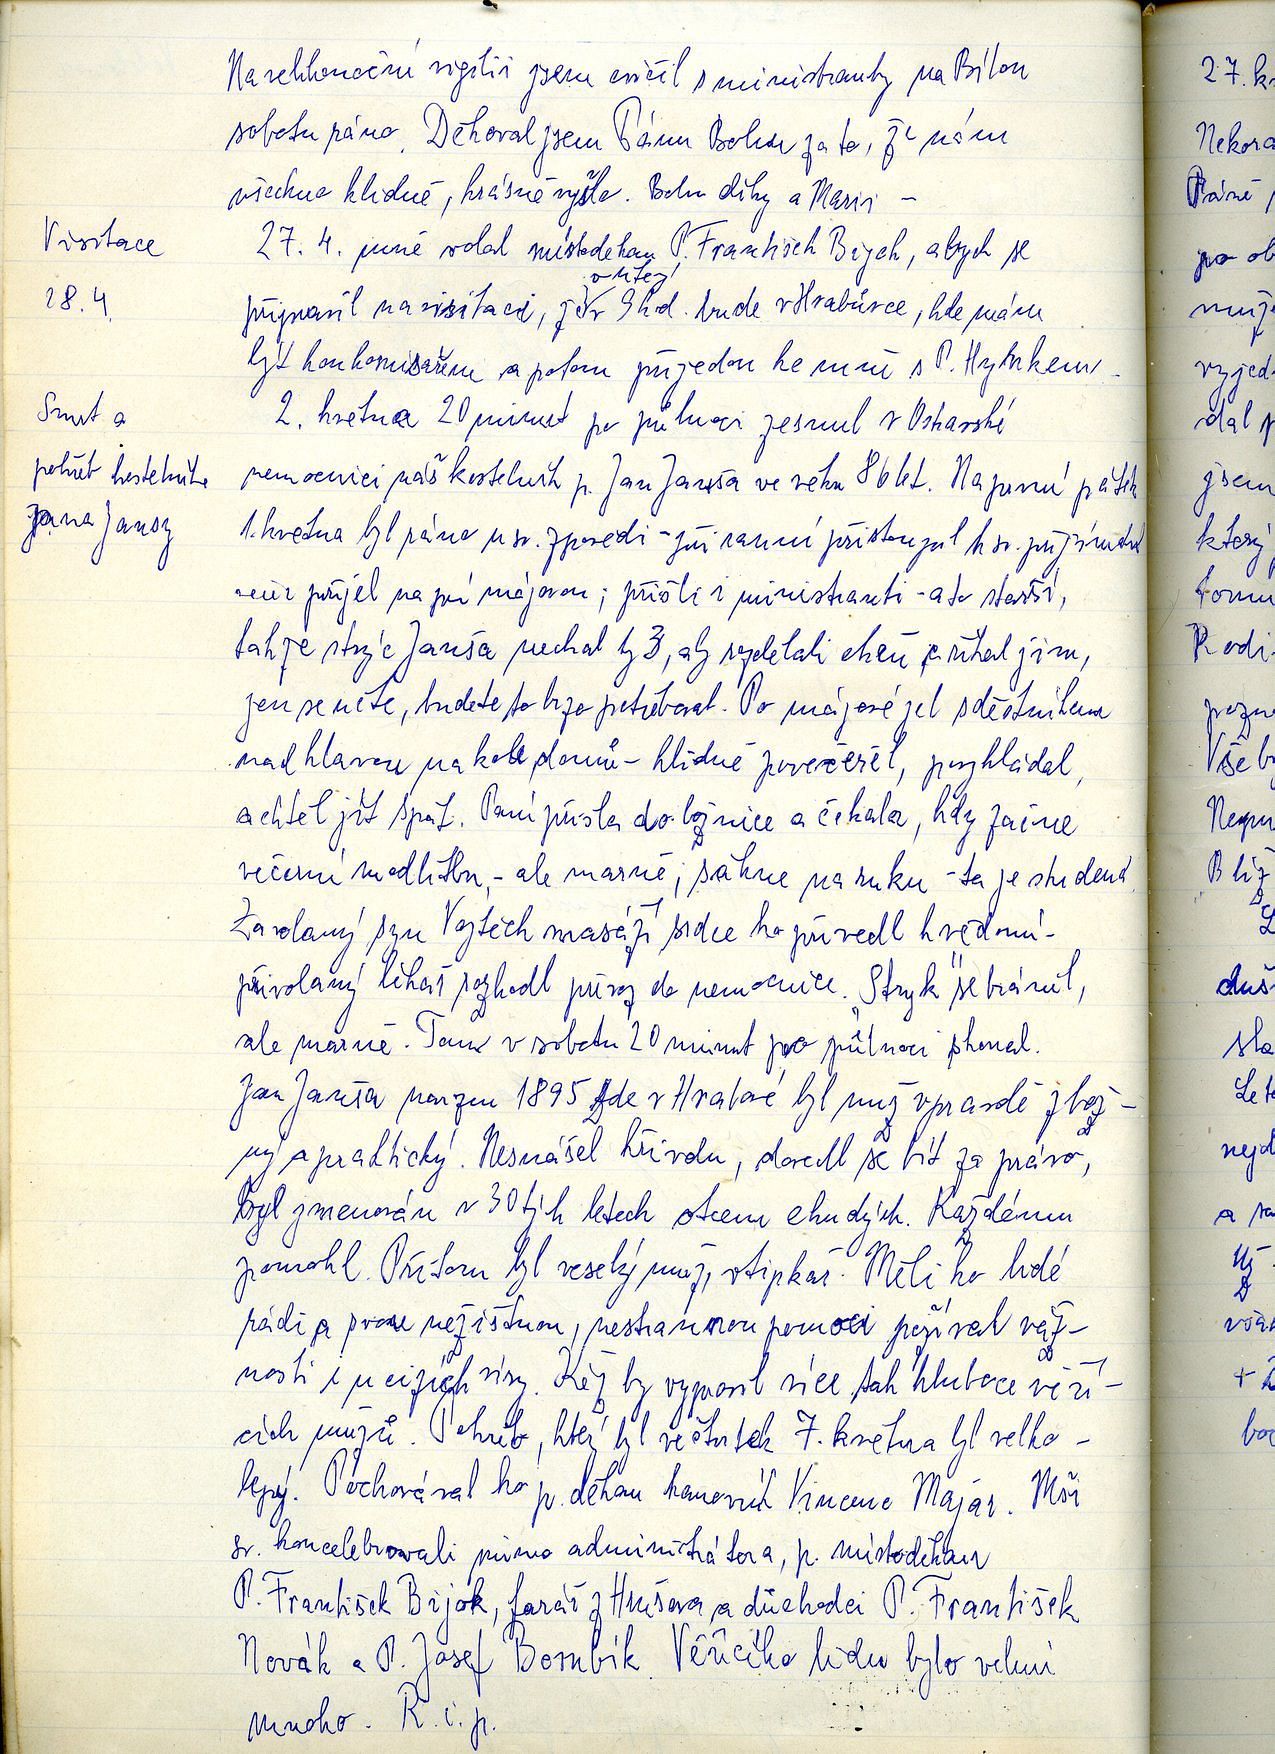 Na velikonoční vigilii jsem cvičil s ministranty na Bílou
sobotu ráno. Děkoval jsem Pánu Bohu za to, že nám
všechno klidně, krásně vyšlo. Bohu díky a Marii –
Visitace
28.4.
27. 4. mně volal místoděkan P. František Bijok, abych se
v úterý
připravil na visitaci, že v 9 hod. bude v Hrabůvce, kde mám
být konkomisařem a potom přijedou ke mně s P. Hytukem –
Smrt a
pohřeb kostelníka
Jana Janszy
2. května 20 minut po půlnoci zesnul v Ostravské
nemocnici náš kostelník p. Jan Janša ve věku 86 let. Na první pátek
1. května byl ráno u sv. zpovědi – při ranní přistoupil k sv. přijímání
večer přijel na prv májovou; přišli i ministranti – a to starší,
takže strýc Janša nechal ty 3, aby rozdělali oheň a říkal jim,
jen se učte, budete to brzo potřebovat. Po májové jel s deštníkem
nad hlavou na kole domů – klidně povečeřel, poghládal,
a chtěl jít spát. Paní přišla do ložnice a čekala, kdy začne
večerní modlitbu, – ale marně; sáhne na ruku – ta je studená.
Zavolaný syn Vojtěch masáží srdce ho přivedl k vědomí –
přivolaný lékař rozhodl převoz do nemocnice. „Stryk" se bránil,
ale marně. Tam v sobotu 20 minut po půlnoci skonal.
Jan Janša narozen 1895 zde v Hrabové byl muž vpravdě zbož–
ný a praktický. Nesnášel křivdu, dovedl se bít za právo,
byl jmenován v 30tých letech otcem chudých. Každému
pomohl. Přitom byl veselý muž, vtipkář. Měli ho lidé
rádi a svou nezištnou, nestrannou pomocí požíval váž–
nosti i u cizích víry. Kéž by vyprosil více tak hluboce věří–
cích mužů. Pohřeb, který byl ve čtvrtek 7. května byl velko –
lepý. Pochovával ho p. děkan kanovník Vincenc Majár. Mši
sv. koncelebrovali mimo administrátora, p. místoděkan
P. František Bijok, farář z Hrušova a důchodci P. František
Novák a P. Josef Bombík. Věřícího lidu bylo velmi
mnoho. R. i. p.